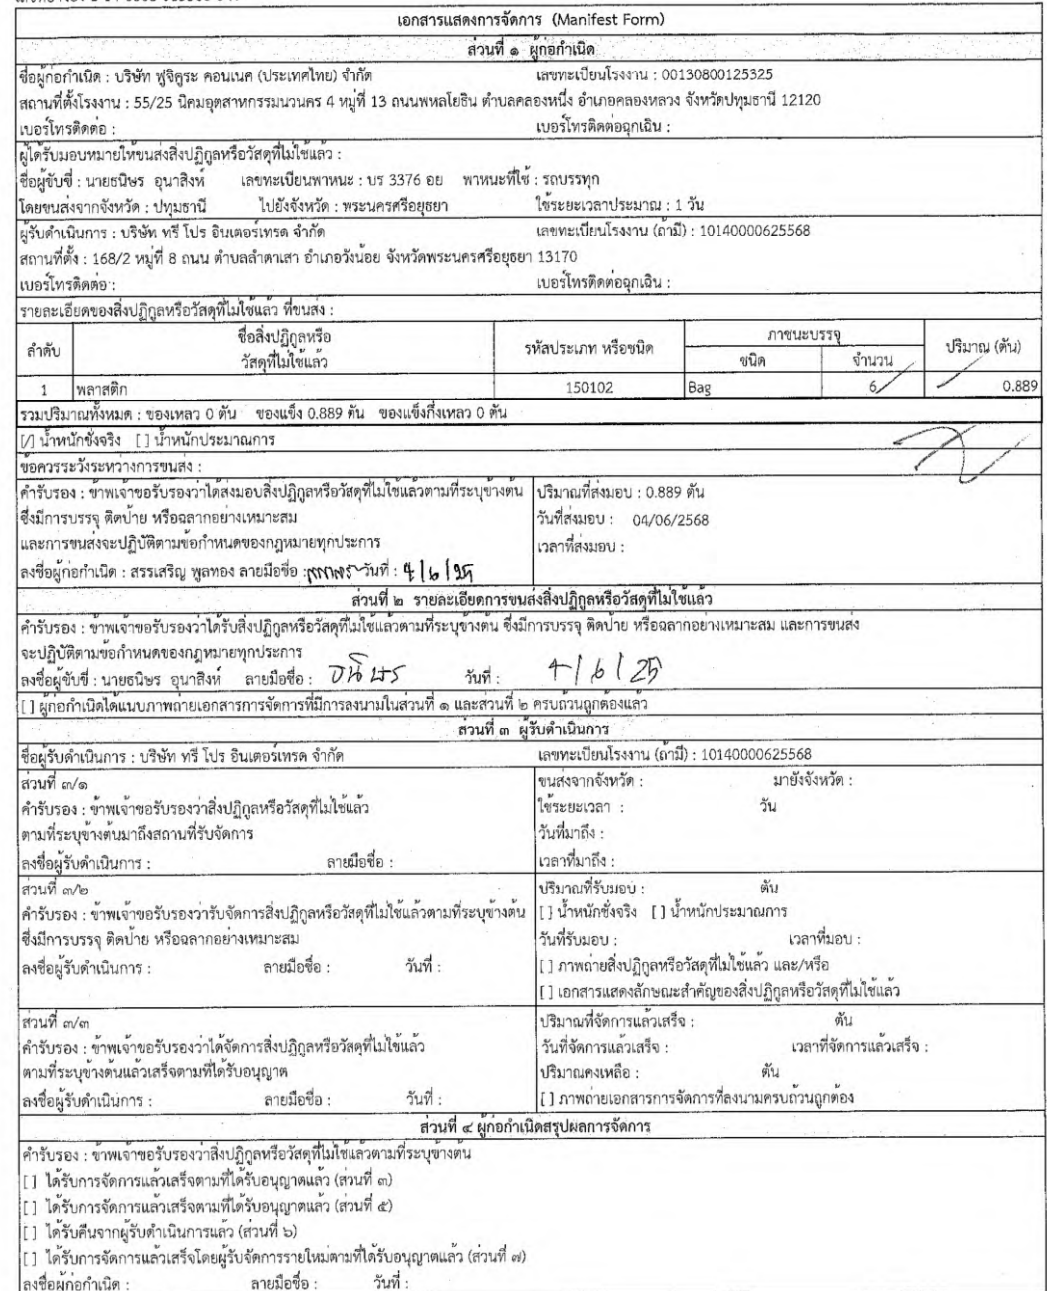 เอกสารแสดงการจัดการ (Manifest Form)
ส่วนที่ ๑ ผู้ก่อกำเนิด
ชื่อผู้ก่อกำเนิด : บริษัท ฟูจิคูระ คอนเนค (ประเทศไทย) จำกัด เลขทะเบียนโรงงาน : 00130800125325
สถานที่ตั้งโรงงาน : 55/25 นิคมอุตสาหกรรมนวนคร 4 หมู่ที่ 13 ถนนพหลโยธิน ตำบลคลองหนึ่ง อำเภอคลองหลวง จังหวัดปทุมธานี 12120
เบอร์โทรติดต่อ : เบอร์โทรติดต่อฉุกเฉิน :
ผู้ได้รับมอบหมายให้ขนส่งสิ่งปฏิกูลหรือวัสดุที่ไม่ใช้แล้ว :
ชื่อผู้ขับขี่ : นายธนิษร อุนาสิงห์ เลขทะเบียนพาหนะ : บร 3376 อย พาหนะที่ใช้ : รถบรรทุก
โดยขนส่งจากจังหวัด : ปทุมธานี ไปยังจังหวัด : พระนครศรีอยุธยา ใช้ระยะเวลาประมาณ : 1 วัน
ผู้รับดำเนินการ : บริษัท ทรี โปร อินเตอร์เทรด จำกัด เลขทะเบียนโรงงาน (ถ้ามี) : 10140000625568
สถานที่ตั้ง : 168/2 หมู่ที่ 8 ถนน ตำบลลำตาเสา อำเภอวังน้อย จังหวัดพระนครศรีอยุธยา 13170
เบอร์โทรติดต่อ : เบอร์โทรติดต่อฉุกเฉิน :
รายละเอียดของสิ่งปฏิกูลหรือวัสดุที่ไม่ใช้แล้ว ที่ขนส่ง :
ลำดับ ชื่อสิ่งปฏิกูลหรือ วัสดุที่ไม่ใช้แล้ว รหัสประเภท หรือชนิด ภาชนะบรรจุ ปริมาณ (ตัน)
ชนิด จำนวน
1 พลาสติก 150102 Bag 6 0.889
รวมปริมาณทั้งหมด : ของเหลว 0 ตัน ของแข็ง 0.889 ตัน ของแข็งกึ่งเหลว 0 ตัน
[/] น้ำหนักชั่งจริง [ ] น้ำหนักประมาณการ
ข้อควรระวังระหว่างการขนส่ง :
คำรับรอง : ข้าพเจ้าขอรับรองว่าได้ส่งมอบสิ่งปฏิกูลหรือวัสดุที่ไม่ใช้แล้วตามที่ระบุข้างต้น ปริมาณที่ส่งมอบ : 0.889 ตัน
ซึ่งมีการบรรจุ ติดป้าย หรือฉลากอย่างเหมาะสม วันที่ส่งมอบ : 04/06/2568
และการขนส่งจะปฏิบัติตามข้อกำหนดของกฎหมายทุกประการ เวลาที่ส่งมอบ :
ลงชื่อผู้ก่อกำเนิด : สรรเสริญ พูลทอง ลายมือชื่อ : วันที่ : 4/6/25
ส่วนที่ ๒ รายละเอียดการขนส่งสิ่งปฏิกูลหรือวัสดุที่ไม่ใช้แล้ว
คำรับรอง : ข้าพเจ้าขอรับรองว่าได้รับสิ่งปฏิกูลหรือวัสดุที่ไม่ใช้แล้วตามที่ระบุข้างต้น ซึ่งมีการบรรจุ ติดป้าย หรือฉลากอย่างเหมาะสม และการขนส่ง
จะปฏิบัติตามข้อกำหนดของกฎหมายทุกประการ
ลงชื่อผู้ขับขี่ : นายธนิษร อุนาสิงห์ ลายมือชื่อ : ธนิษร วันที่ : 4/6/25
[ ] ผู้ก่อกำเนิดได้แนบภาพถ่ายเอกสารการจัดการที่มีการลงนามในส่วนที่ ๑ และส่วนที่ ๒ ครบถ้วนถูกต้องแล้ว
ส่วนที่ ๓ ผู้รับดำเนินการ
ชื่อผู้รับดำเนินการ : บริษัท ทรี โปร อินเตอร์เทรด จำกัด เลขทะเบียนโรงงาน (ถ้ามี) : 10140000625568
ส่วนที่ ๓/๑ ขนส่งจากจังหวัด : มายังจังหวัด :
คำรับรอง : ข้าพเจ้าขอรับรองว่าสิ่งปฏิกูลหรือวัสดุที่ไม่ใช้แล้ว ใช้ระยะเวลา : วัน
ตามที่ระบุข้างต้นมาถึงสถานที่รับจัดการ วันที่มาถึง :
ลงชื่อผู้รับดำเนินการ : ลายมือชื่อ : เวลาที่มาถึง :
ส่วนที่ ๓/๒ ปริมาณที่รับมอบ : ตัน
คำรับรอง : ข้าพเจ้าขอรับรองว่ารับจัดการสิ่งปฏิกูลหรือวัสดุที่ไม่ใช้แล้วตามที่ระบุข้างต้น [ ] น้ำหนักชั่งจริง [ ] น้ำหนักประมาณการ
ซึ่งมีการบรรจุ ติดป้าย หรือฉลากอย่างเหมาะสม วันที่รับมอบ : เวลาที่มอบ :
ลงชื่อผู้รับดำเนินการ : ลายมือชื่อ : วันที่ : [ ] ภาพถ่ายสิ่งปฏิกูลหรือวัสดุที่ไม่ใช้แล้ว และ/หรือ
[ ] เอกสารแสดงลักษณะสำคัญของสิ่งปฏิกูลหรือวัสดุที่ไม่ใช้แล้ว
ส่วนที่ ๓/๓ ปริมาณที่จัดการแล้วเสร็จ : ตัน
คำรับรอง : ข้าพเจ้าขอรับรองว่าได้จัดการสิ่งปฏิกูลหรือวัสดุที่ไม่ใช้แล้ว วันที่จัดการแล้วเสร็จ : เวลาที่จัดการแล้วเสร็จ :
ตามที่ระบุข้างต้นแล้วเสร็จตามที่ได้รับอนุญาต ปริมาณคงเหลือ : ตัน
ลงชื่อผู้รับดำเนินการ : ลายมือชื่อ : วันที่ : [ ] ภาพถ่ายเอกสารการจัดการที่ลงนามครบถ้วนถูกต้อง
ส่วนที่ ๔ ผู้ก่อกำเนิดสรุปผลการจัดการ
คำรับรอง : ข้าพเจ้าขอรับรองว่าสิ่งปฏิกูลหรือวัสดุที่ไม่ใช้แล้วตามที่ระบุข้างต้น
[ ] ได้รับการจัดการแล้วเสร็จตามที่ได้รับอนุญาตแล้ว (ส่วนที่ ๓)
[ ] ได้รับการจัดการแล้วเสร็จตามที่ได้รับอนุญาตแล้ว (ส่วนที่ ๕)
[ ] ได้รับคืนจากผู้รับดำเนินการแล้ว (ส่วนที่ ๖)
[ ] ได้รับการจัดการแล้วเสร็จโดยผู้รับจัดการรายใหม่ตามที่ได้รับอนุญาตแล้ว (ส่วนที่ ๗)
ลงชื่อผู้ก่อกำเนิด : ลายมือชื่อ : วันที่ :